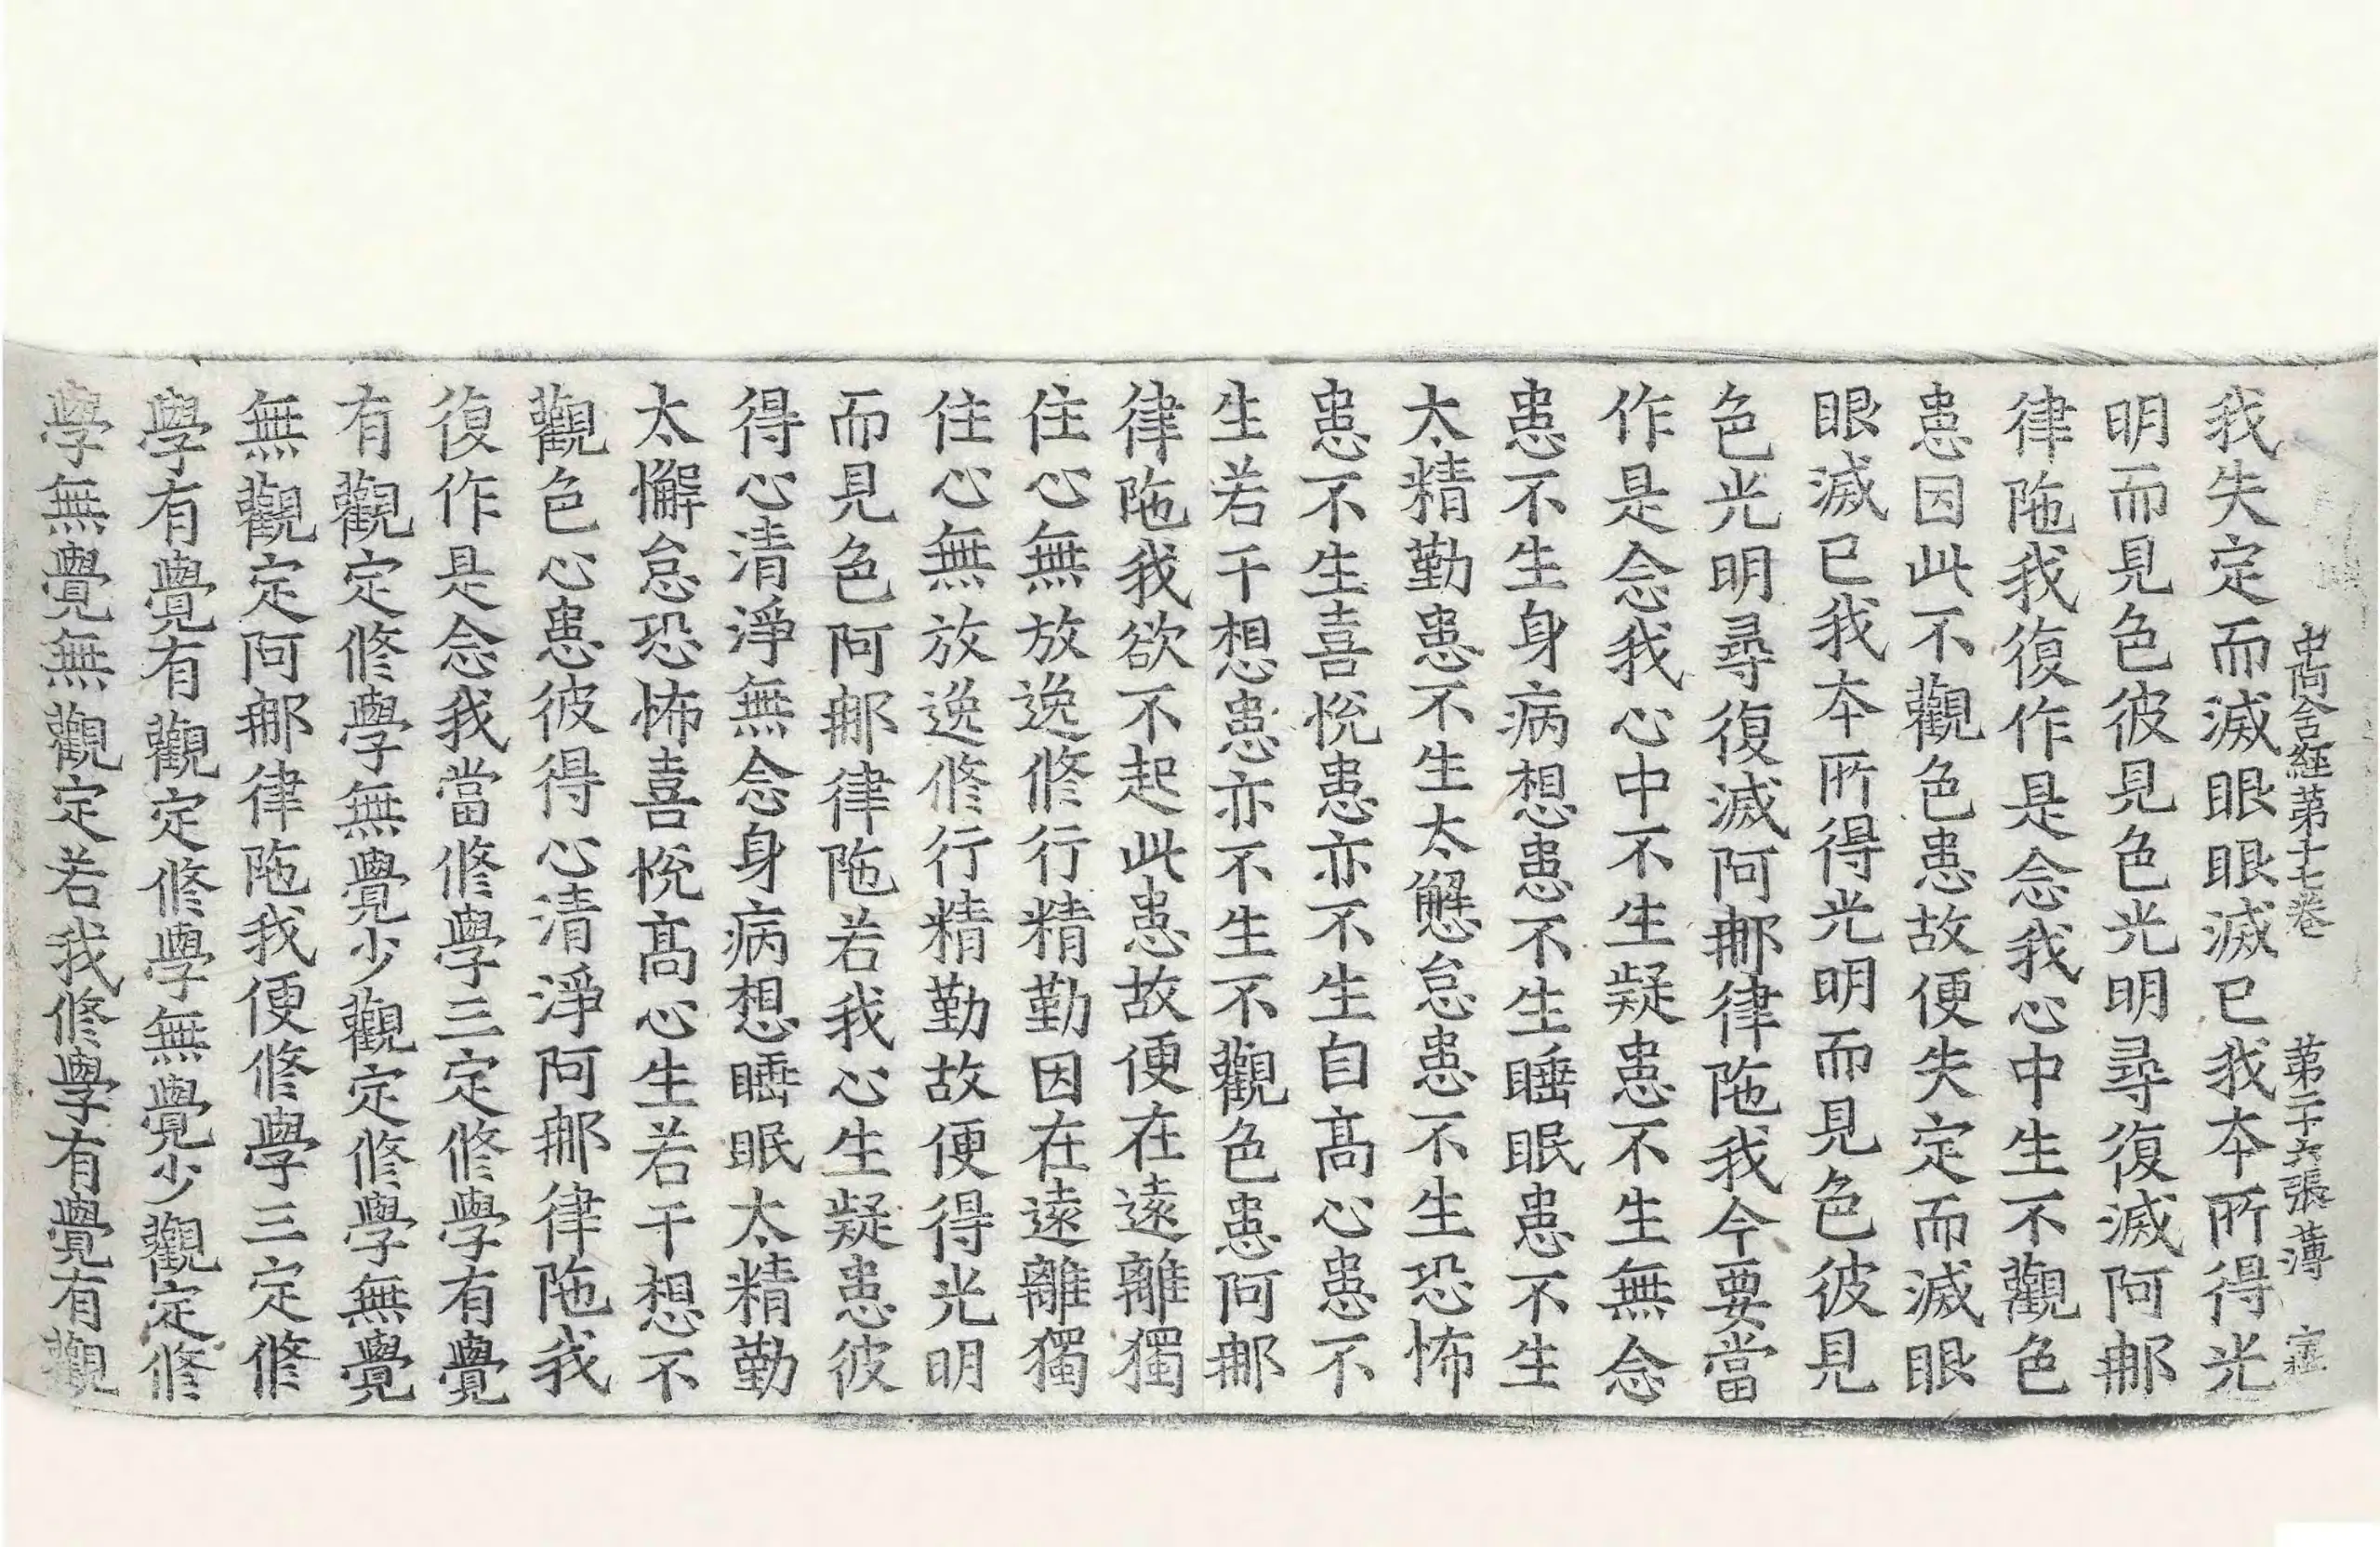 中阿含經第十七卷　第二十六張　薄
我失定而滅眼眼滅已我本所得光
明而見色彼見色光明尋復滅阿那
律陁我復作是念我心中生不觀色
患因此不觀色患故便失定而滅眼
眼滅已我本所得光明而見色彼見
色光明尋復滅阿那律陁我今要當
作是念我心中不生疑患不生無念
患不生身病想患不生睡眠患不生
太精勤患不生太懈怠患不生恐怖
患不生喜悅患亦不生自髙心患不
生若干想患亦不生不觀色患阿那
律陁我欲不起此患故便在遠離獨
住心無放逸修行精勤因在遠離獨
住心無放逸修行精勤故便得光明
而見色阿那律陁若我心生疑患彼
得心清淨無念身病想睡眠太精勤
太懈怠恐怖喜悅髙心生若干想不
觀色心患彼得心清淨阿那律陁我
復作是念我當修學三定修學有覺
有觀定修學無覺少觀定修學無覺
無觀定阿那律陁我便修學三定修
學有覺有觀定修學無覺少觀定修
學無覺無觀定若我修學有覺有觀